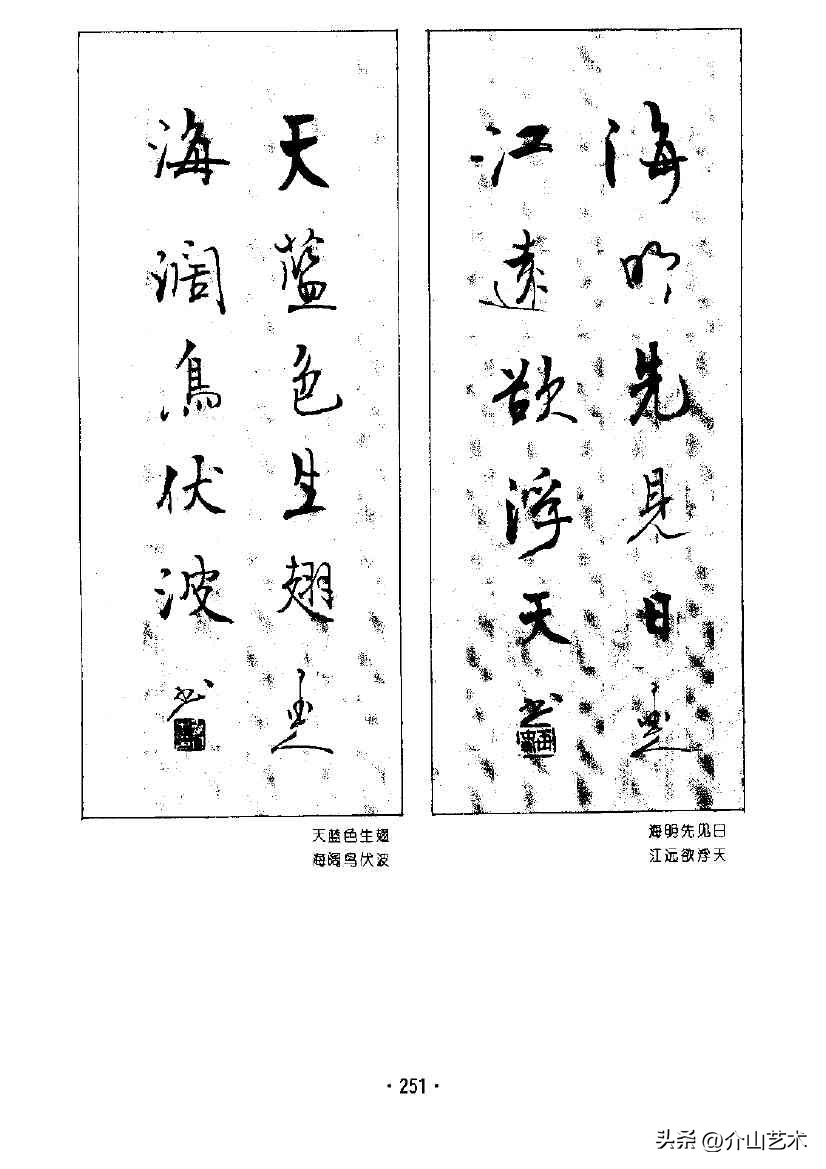 海明先見日
江遠欲浮天
书
海明先见日
江远欲浮天
天藍色生翅
海濶鳥伏波
书
天蓝色生翅
海阔鸟伏波
·251·
头条@介山艺术